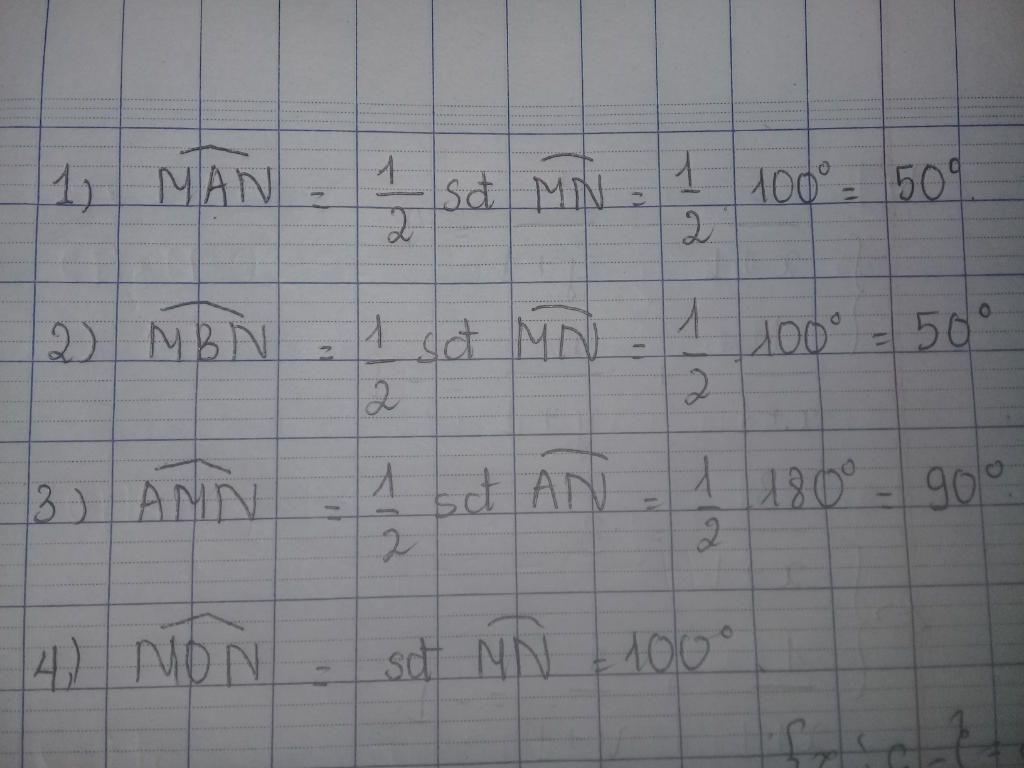 1) MAN = 1/2 sđ MN = 1/2 . 100° = 50°.
2) MBN = 1/2 sđ MN = 1/2 . 100° = 50°
3) AMN = 1/2 sđ AN = 1/2 . 180° = 90°.
4) MON = sđ MN = 100°.